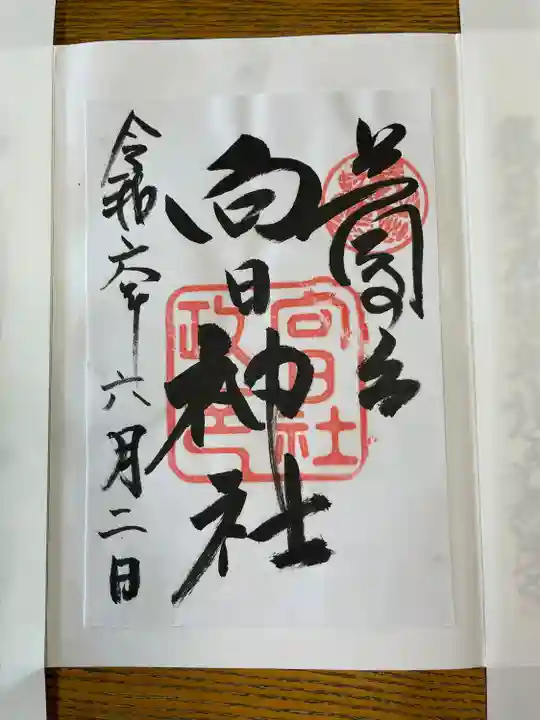 向日神社
向日社
令和六年六月二日